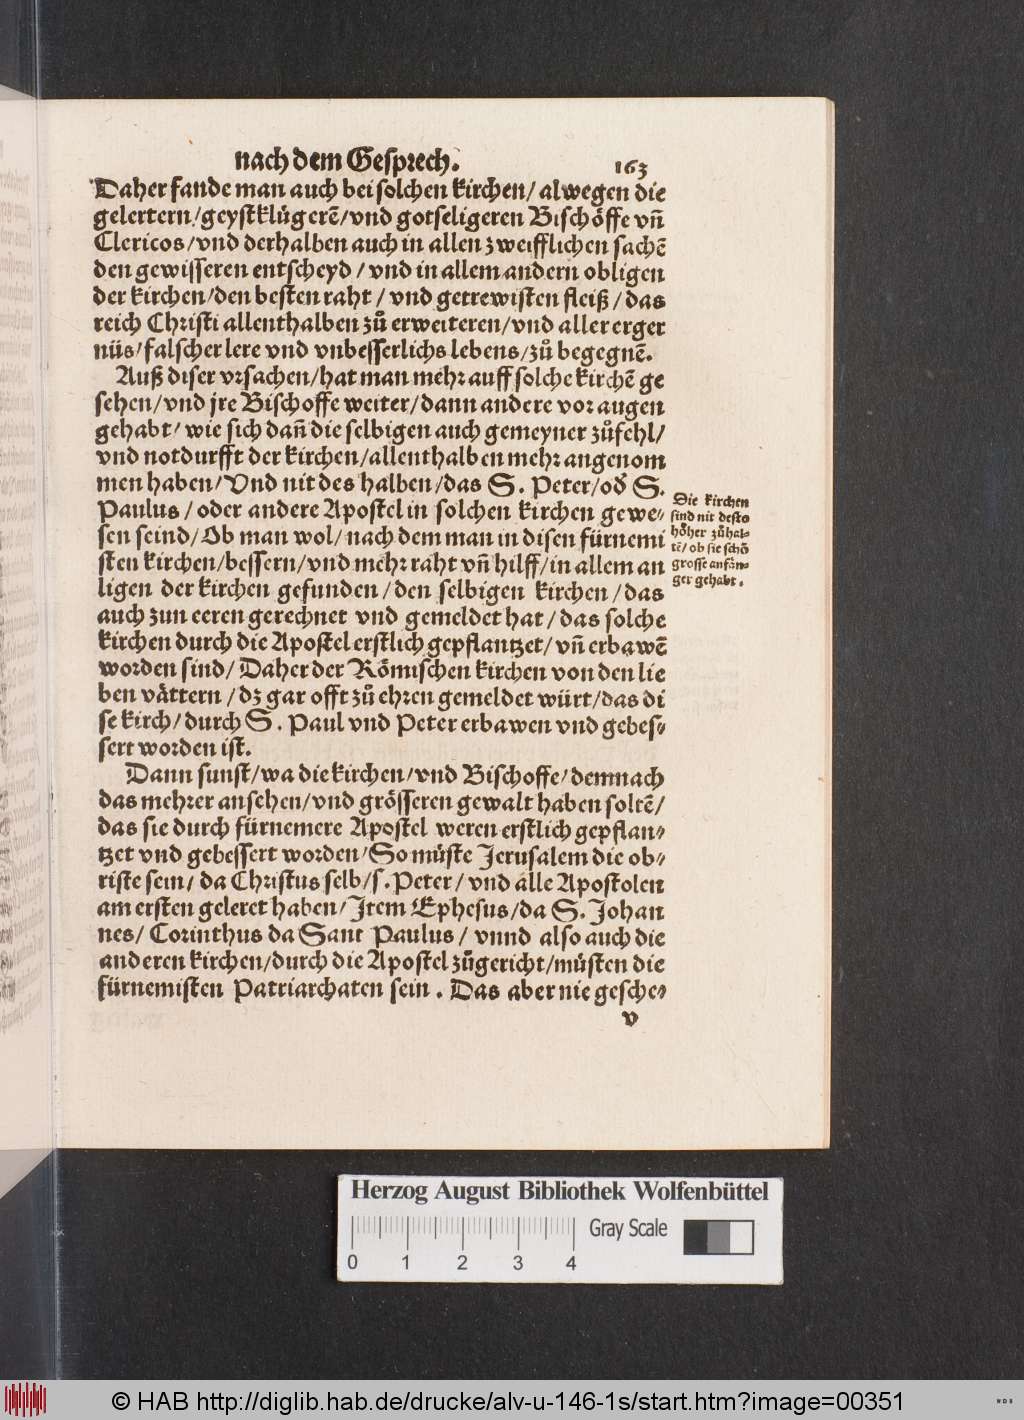 nach dem Gesprech. 163
Daher fande man auch bei solchen kirchen/ alwegen die
gelertern/geystklügerẽ/vnd gotseligeren Bischöffe vñ
Clericos/vnd derhalben auch in allen zweifflichen sachẽ
den gewisseren entscheyd/ vnd in allem andern obligen
der kirchen/den besten raht/ vnd getrewisten fleiß/das
reich Christi allenthalben zů erweiteren/vnd aller erger
nüs/falscher lere vnd vnbesserlichs lebens/zů begegnẽ.
Auß diser vrsachen/hat man mehr auff solche kirchẽ ge
sehen/vnd jre Bischoffe weiter/dann andere vor augen
gehabt/ wie sich dañ die selbigen auch gemeyner zůfehl/
vnd notdurfft der kirchen/allenthalben mehr angenom
men haben/Vnd nit des halben/das S. Peter/oď S.
Paulus/oder andere Apostel in solchen kirchen gewe⸗
sen seind/Ob man wol/nach dem man in disen fürnemi
sten kirchen/bessern/vnd mehr raht vñ hilff/in allem an
ligen der kirchen gefunden/den selbigen kirchen/das
auch zun eeren gerechnet vnd gemeldet hat/das solche
kirchen durch die Apostel erstlich gepflantzet/vñ erbawẽ
worden sind/Daher der Römischen kirchen von den lie
ben vättern/dz gar offt zů ehren gemeldet würt/das di
se kirch/durch S. Paul vnd Peter erbawen vnd gebes⸗
sert worden ist.
Dann sunst/wa die kirchen/vnd Bischoffe/demnach
das mehrer ansehen/vnd grösseren gewalt haben soltẽ/
das sie durch fürnemere Apostel weren erstlich gepflan⸗
tzet vnd gebessert worden/So müste Jerusalem die ob⸗
riste sein/da Christus selb/s. Peter/vnd alle Apostolen
am ersten geleret haben/Item Ephesus/da S. Johan
nes/ Corinthus da Sant Paulus/ vnnd also auch die
anderen kirchen/durch die Apostel zůgericht/müsten die
fürnemisten Patriarchaten sein. Das aber nie gesche⸗
v
Die kirchen
sind nit desto
höher zůhal⸗
tẽ/ob sie schõ
grosse anfän⸗
ger gehabt.
Herzog August Bibliothek Wolfenbüttel
Gray Scale
0 1 2 3 4
© HAB http://diglib.hab.de/drucke/alv-u-146-1s/start.htm?image=00351